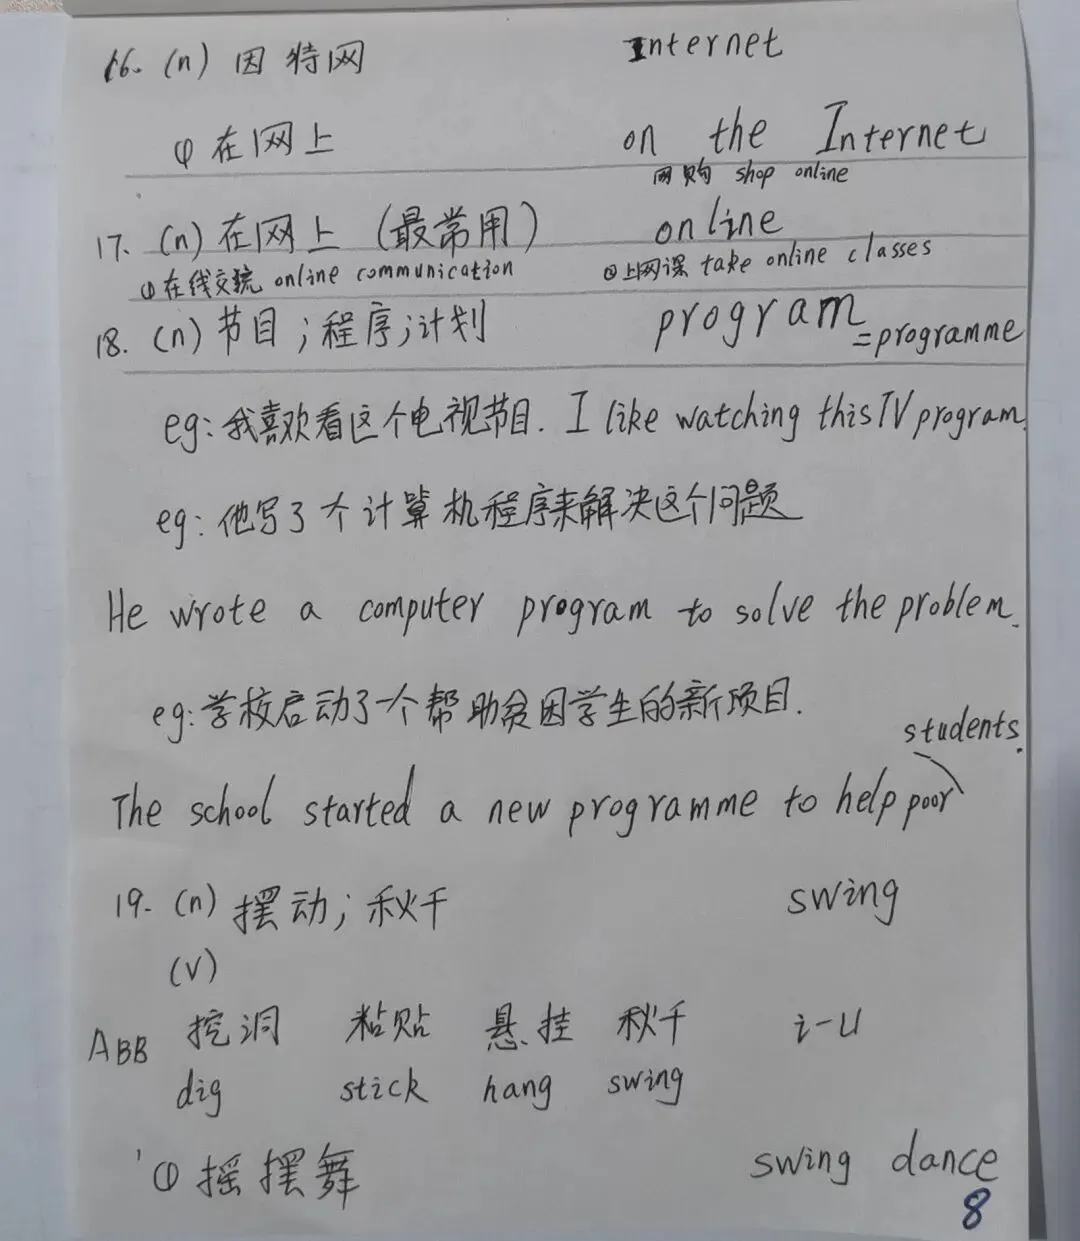 16. (n) 因特网 Internet
① 在网上 on the Internet
网购 shop online
17. (n) 在网上 (最常用) online
① 在线交流 online communication ② 上网课 take online classes
18. (n) 节目；程序；计划 program = programme
eg: 我喜欢看这个电视节目. I like watching this TV program.
eg: 他写了个计算机程序来解决这个问题
He wrote a computer program to solve the problem.
eg: 学校启动了一个帮助贫困学生的新项目.
The school started a new programme to help poor students.
19. (n) 摆动；秋千 swing
(v)
ABB 挖洞 粘贴 悬挂 秋千 i-u
dig stick hang swing
① 摇摆舞 swing dance
8